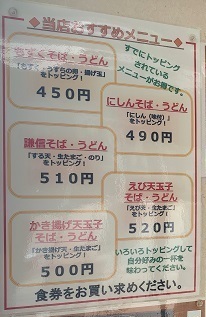 当店おすすめメニュー
もずくそば・うどん
「もずく・うずらの卵・揚げ玉」
をトッピング！
450円
すでにトッピング
されている
メニューがお得です。
にしんそば・うどん
「にしん(味付)」
をトッピング！
490円
謙信そば・うどん
「する天・生たまご・のり」
をトッピング！
510円
えび天玉子
そば・うどん
「えび天・生たまご」
をトッピング！
520円
かき揚げ天玉子
そば・うどん
「かき揚げ天・生たまご」
をトッピング！
500円
いろいろトッピングして
自分好みの一杯を
味わってください。
食券をお買い求めください。